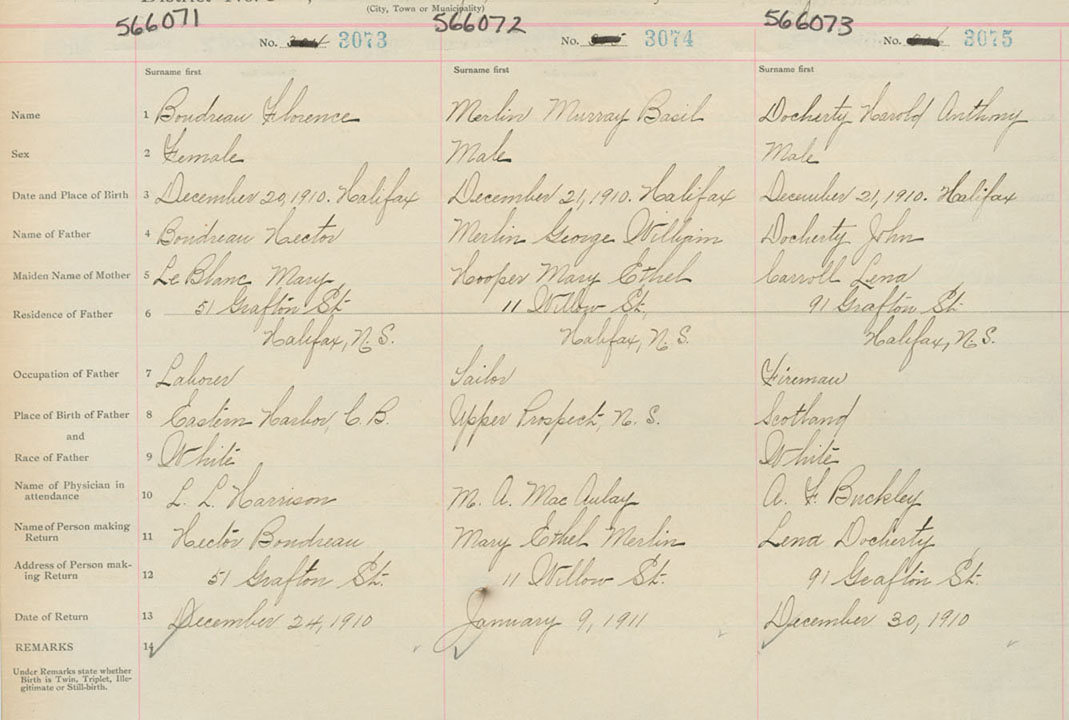 District No.
(City, Town or Municipality)
566071 566072 566073
No. 3073 No. 3074 No. 3075
Surname first Surname first Surname first
Name 1 Boudreau Florence Merlin Murray Basil Docherty Harold Anthony
Sex 2 Female Male Male
Date and Place of Birth 3 December 20, 1910. Halifax December 21, 1910. Halifax December 21, 1910. Halifax
Name of Father 4 Boudreau Hector Merlin George William Docherty John
Maiden Name of Mother 5 Le Blanc Mary Hooper Mary Ethel Carroll Lena
Residence of Father 6 51 Grafton St. 11 Willow St. 91 Grafton St.
Halifax, N.S. Halifax, N.S. Halifax, N.S.
Occupation of Father 7 Laborer Sailor Fireman
Place of Birth of Father 8 Eastern Harbor, C.B. Upper Prospect, N.S. Scotland
and
Race of Father 9 White White
Name of Physician in
attendance 10 L. L. Harrison M. A. Mac Aulay A. F. Buckley
Name of Person making
Return 11 Hector Boudreau Mary Ethel Merlin Lena Docherty
Address of Person mak-
ing Return 12 51 Grafton St. 11 Willow St. 91 Grafton St.
Date of Return 13 December 24, 1910 January 9, 1911 December 30, 1910
REMARKS 14
Under Remarks state whether
Birth is Twin, Triplet, Ille-
gitimate or Still-birth.